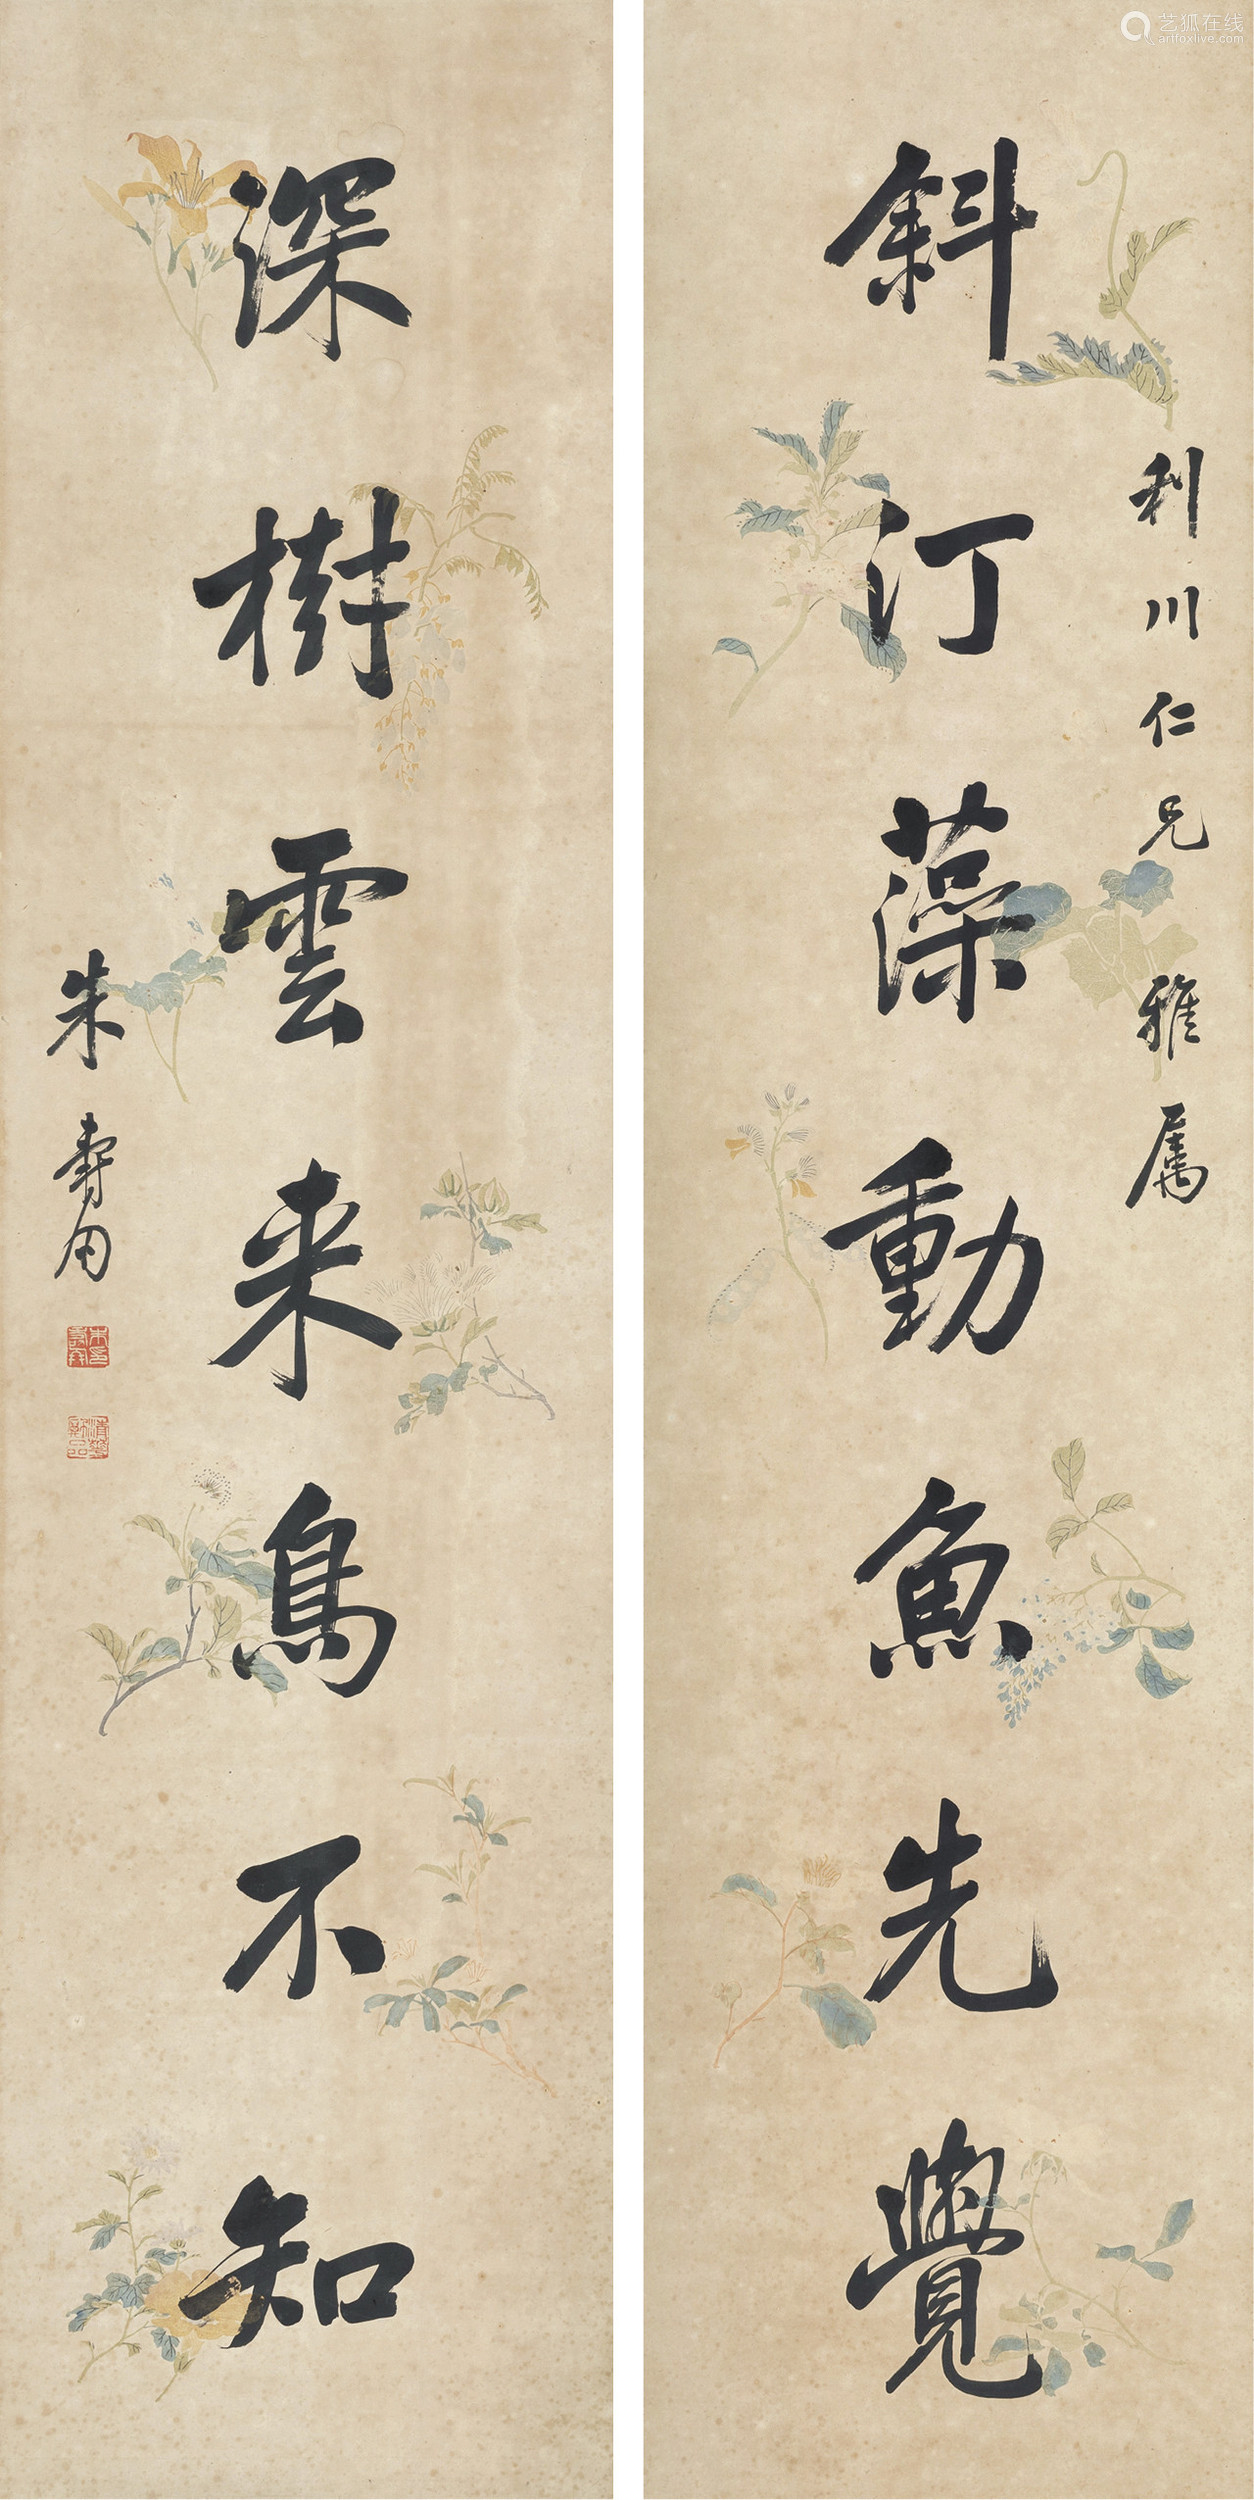 艺狐在线
artfoxlive.com
利川仁兄雅属
斜汀藻動魚先覺
深樹雲来鳥不知
朱壽朋